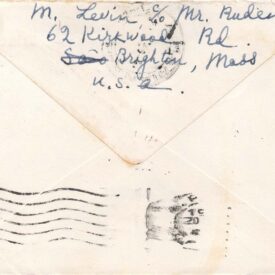 M. Levin c/o Mr. Rudie
62 Kirkwood Rd.
Brighton, Mass
U.S.A.